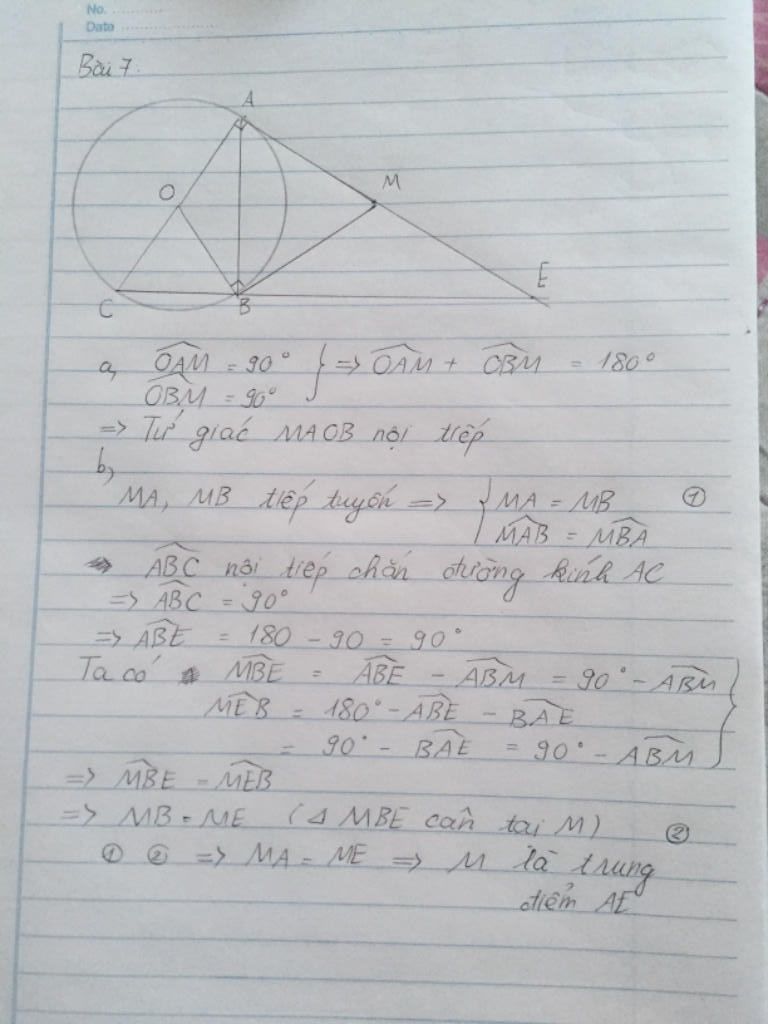 No. ............
Date ............
Bài 7.
A
O
M
E
C
B
a, \widehat{OAM} = 90° } => \widehat{OAM} + \widehat{OBM} = 180°
\widehat{OBM} = 90°
=> Tứ giác MAOB nội tiếp
b,
MA, MB tiếp tuyến => { MA = MB ①
\widehat{MAB} = \widehat{MBA}
\widehat{ABC} nội tiếp chắn đường kính AC
=> \widehat{ABC} = 90°
=> \widehat{ABE} = 180 - 90 = 90°
Ta có \widehat{MBE} = \widehat{ABE} - \widehat{ABM} = 90° - \widehat{ABM}
\widehat{MEB} = 180° - \widehat{ABE} - \widehat{BAE}
= 90° - \widehat{BAE} = 90° - \widehat{ABM} }
=> \widehat{MBE} = \widehat{MEB}
=> MB = ME (Δ MBE cân tại M) ②
① ② => MA = ME => M là trung
điểm AE